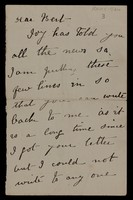 Dear Bert
Joy has Told you
all the news so
I am putting these
few lines in so
that you can write
back to me. as it
is a long time since
I got your letter
but I could not
write to any one